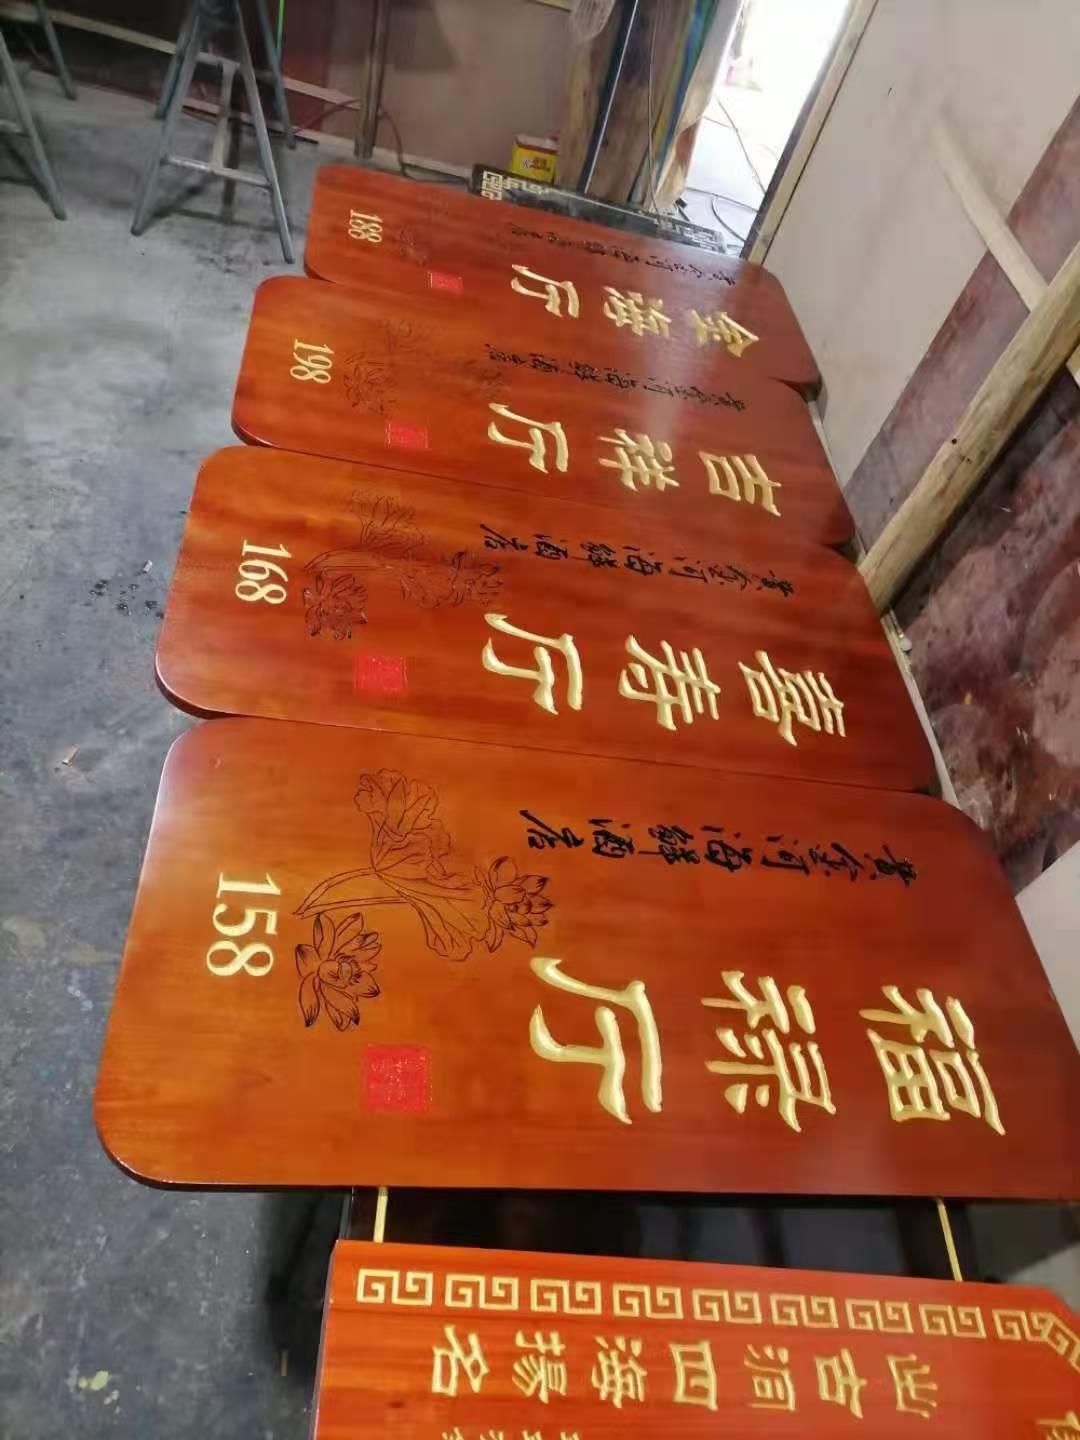 黄金河海鲜酒店
金海厅
188
黄金河海鲜酒店
吉祥厅
198
黄金河海鲜酒店
喜寿厅
168
黄金河海鲜酒店
福禄厅
158
山古洞四海揚名